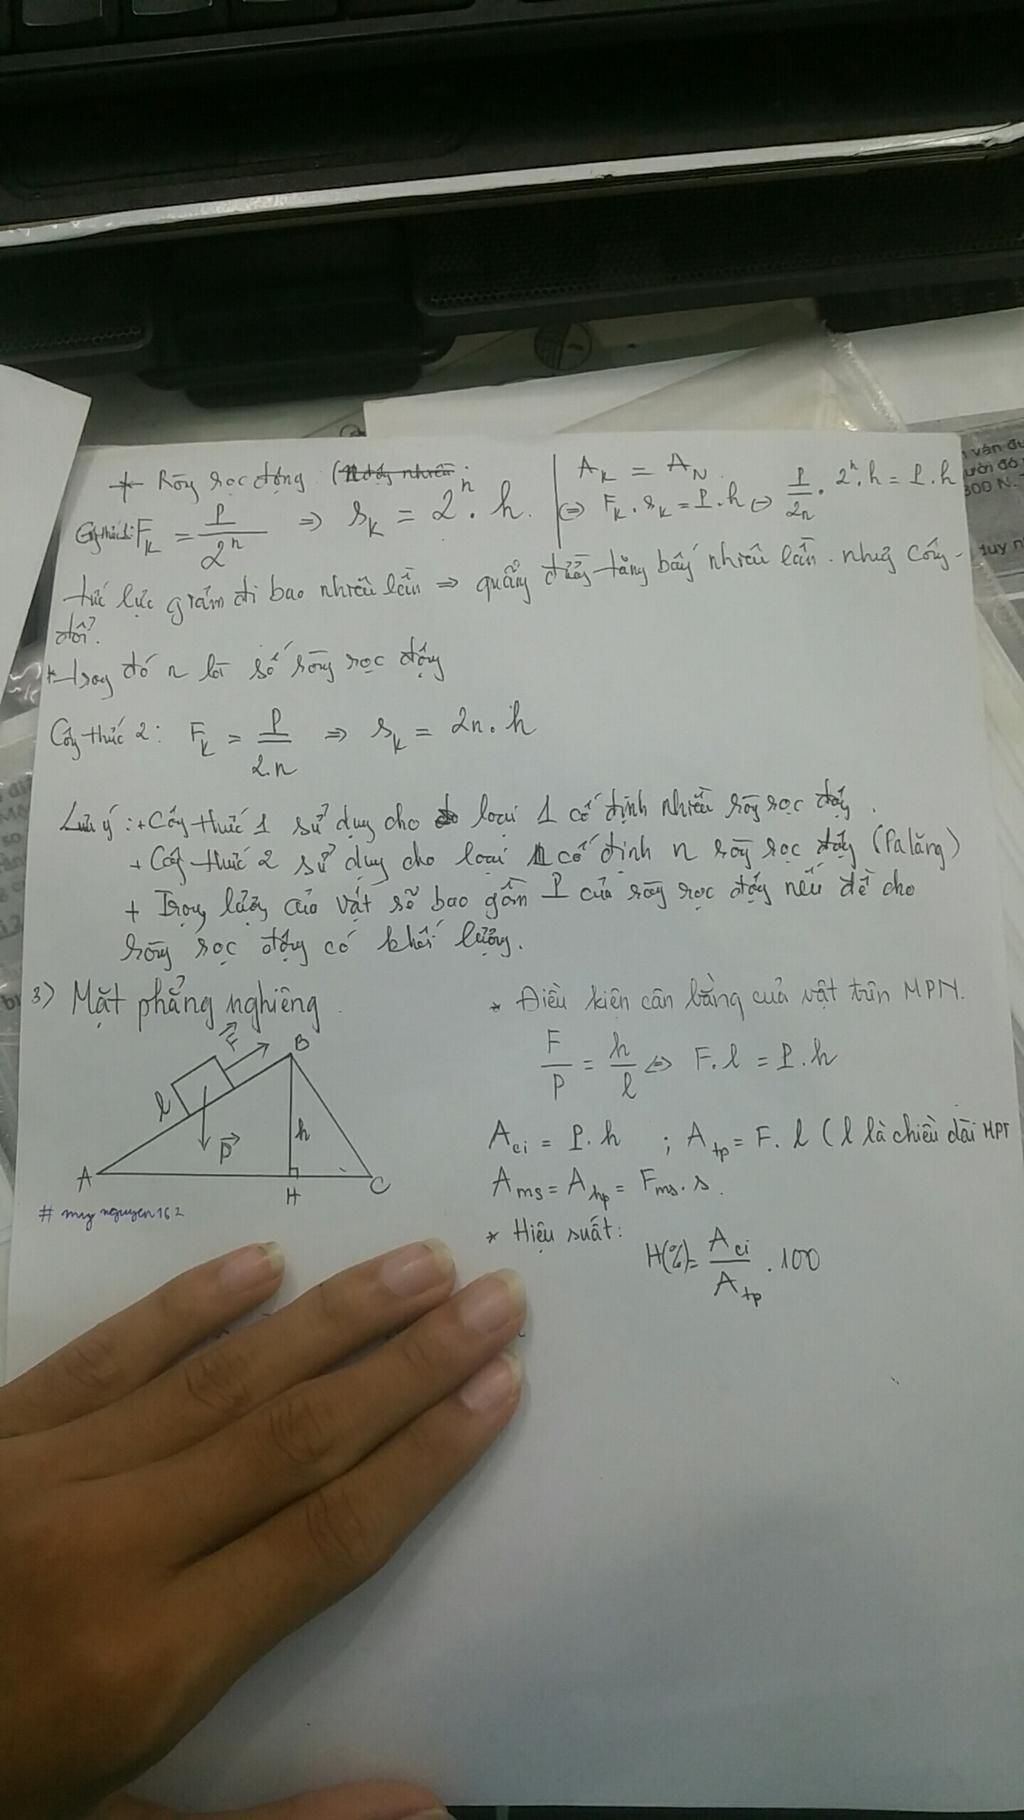 * Ròng rọc động
Công thức 1: F_k = P/2^n => s_k = 2^n . h.
A_k = A_N
<=> F_k . s_k = P . h <=> P/2n . 2^n . h = P . h
tức lực giảm đi bao nhiêu lần => quãng đường tăng bấy nhiêu lần. nhưng công
đổi.
* trong đó n là số ròng rọc động
Công thức 2: F_k = P/2.n => s_k = 2n . h
Lưu ý: + Công thức 1 sử dụng cho loại 1 cố định nhiều ròng rọc động.
+ Công thức 2 sử dụng cho loại n cố định n ròng rọc động (Palăng)
+ Trọng lượng của vật sẽ bao gồm P của ròng rọc động nếu đề cho
ròng rọc động có khối lượng.
3) Mặt phẳng nghiêng.
F
B
l
P
h
A
H
C
# my nguyen162
* Điều kiện cân bằng của vật trên MPN.
F/P = h/l <=> F . l = P . h
A_ci = P . h ; A_tp = F . l (l là chiều dài MPN
A_ms = A_hp = F_ms . s.
* Hiệu suất:
H(%) = A_ci/A_tp . 100
văn đư
ười đó
300 N.
duy n